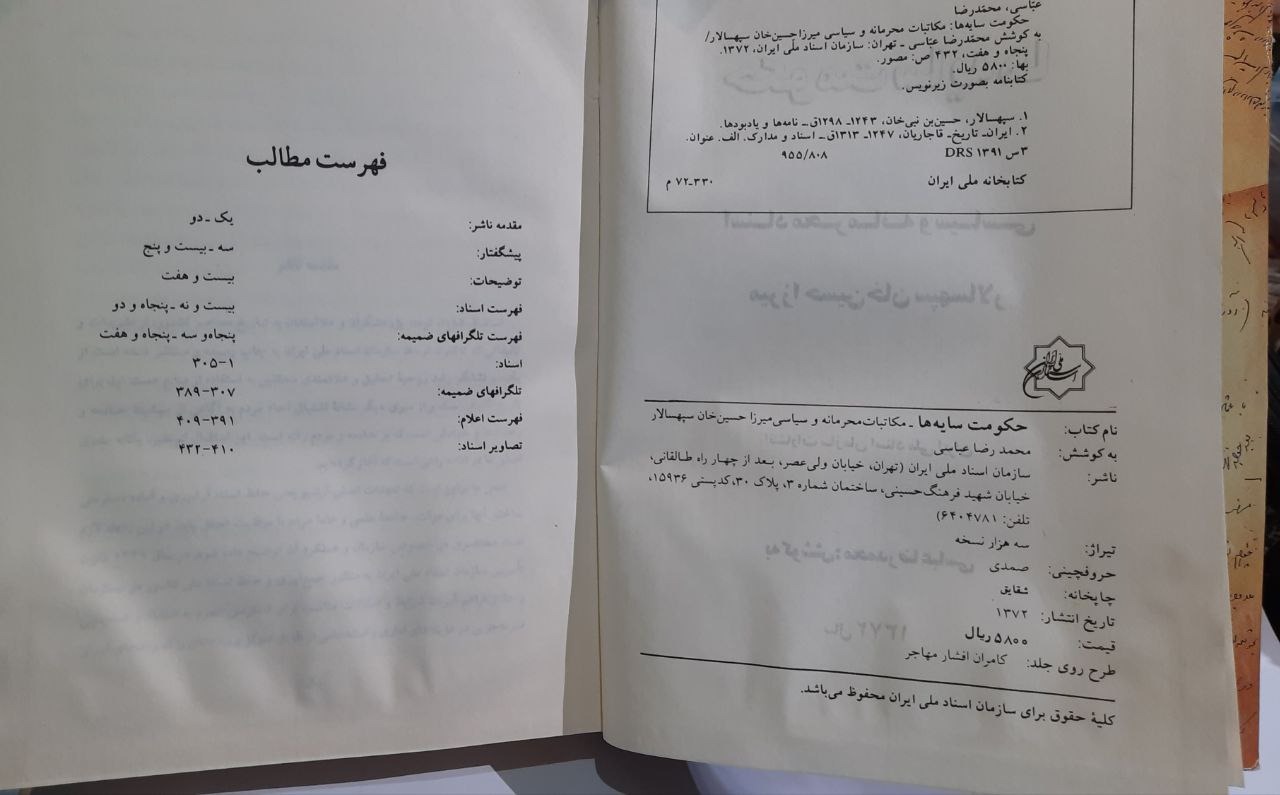 عبّاسی، محمّدرضا
حکومت سایه‌ها: مکاتبات محرمانه و سیاسی میرزاحسین‌خان سپهسالار/
به کوشش محمّدرضا عبّاسی ـ تهران: سازمان اسناد ملّی ایران، ۱۳۷۲.
پنجاه و هفت، ۴۳۲ ص: مصور.
بها: ۵۸۰۰ ریال.
کتابنامه بصورت زیرنویس.
۱. سپهسالار، حسین‌بن نبی‌خان، ۱۲۴۳ـ ۱۲۹۸ق ـ نامه‌ها و یادبودها.
۲. ایران ـ تاریخ ـ قاجاریان، ۱۲۴۷ـ ۱۳۱۳ق ـ اسناد و مدارک. الف. عنوان.
۳س ۱۳۹۱ DRS ۹۵۵/۸۰۸
کتابخانه ملی ایران ۳۳۰ـ۷۲ م
نام کتاب: حکومت سایه‌ها ـ مکاتبات محرمانه و سیاسی میرزا حسین‌خان سپهسالار
به کوشش: محمد رضا عباسی
ناشر: سازمان اسناد ملی ایران (تهران، خیابان ولی‌عصر، بعد از چهار راه طالقانی،
خیابان شهید فرهنگ‌حسینی، ساختمان شماره ۳، پلاک ۳۰، کدپستی ۱۵۹۳۶،
تلفن: ۶۴۰۴۷۸۱)
تیراژ: سه هزار نسخه
حروفچینی: صمدی
چاپخانه: شقایق
تاریخ انتشار: ۱۳۷۲
قیمت: ۵۸۰۰ ریال
طرح روی جلد: کامران افشار مهاجر
کلیهٔ حقوق برای سازمان اسناد ملی ایران محفوظ می‌باشد.
فهرست مطالب
مقدمه ناشر: یک ـ دو
پیشگفتار: سه ـ بیست و پنج
توضیحات: بیست و هفت
فهرست اسناد: بیست و نه ـ پنجاه و دو
فهرست تلگرافهای ضمیمه: پنجاه‌و سه ـ پنجاه و هفت
اسناد: ۱-۳۰۵
تلگرافهای ضمیمه: ۳۰۷-۳۸۹
فهرست اعلام: ۳۹۱-۴۰۹
تصاویر اسناد: ۴۱۰-۴۳۲